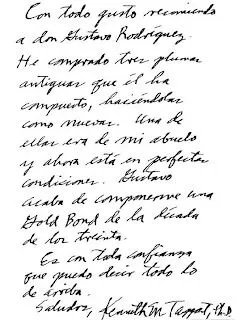 Con todo gusto recomiendo
a don Gustavo Rodríguez.
He comprado tres plumas
antiguas que él ha
compuesto, haciéndolas
como nuevas. Una de
ellas era de mi abuelo
y ahora está en perfectas
condiciones. Gustavo
acaba de componerme una
Gold Bond de la década
de los treinta.
Es con toda confianza
que puedo decir todo lo
de arriba.
Saludos, Kenneth M. Taggart, Ph.D.